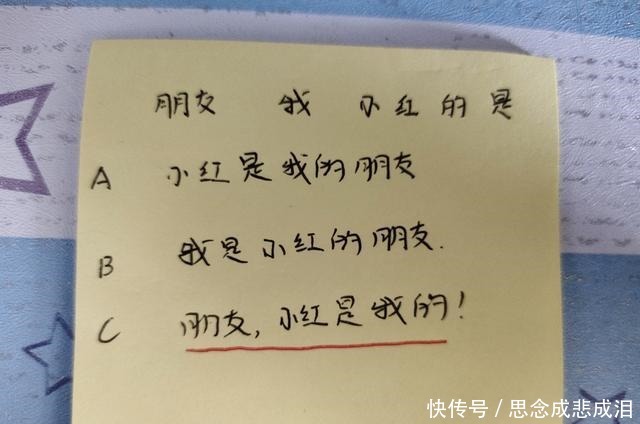 朋友 我 小红 的 是
A 小红是我的朋友
B 我是小红的朋友.
C 朋友,小红是我的!
快传号/思念成悲成泪